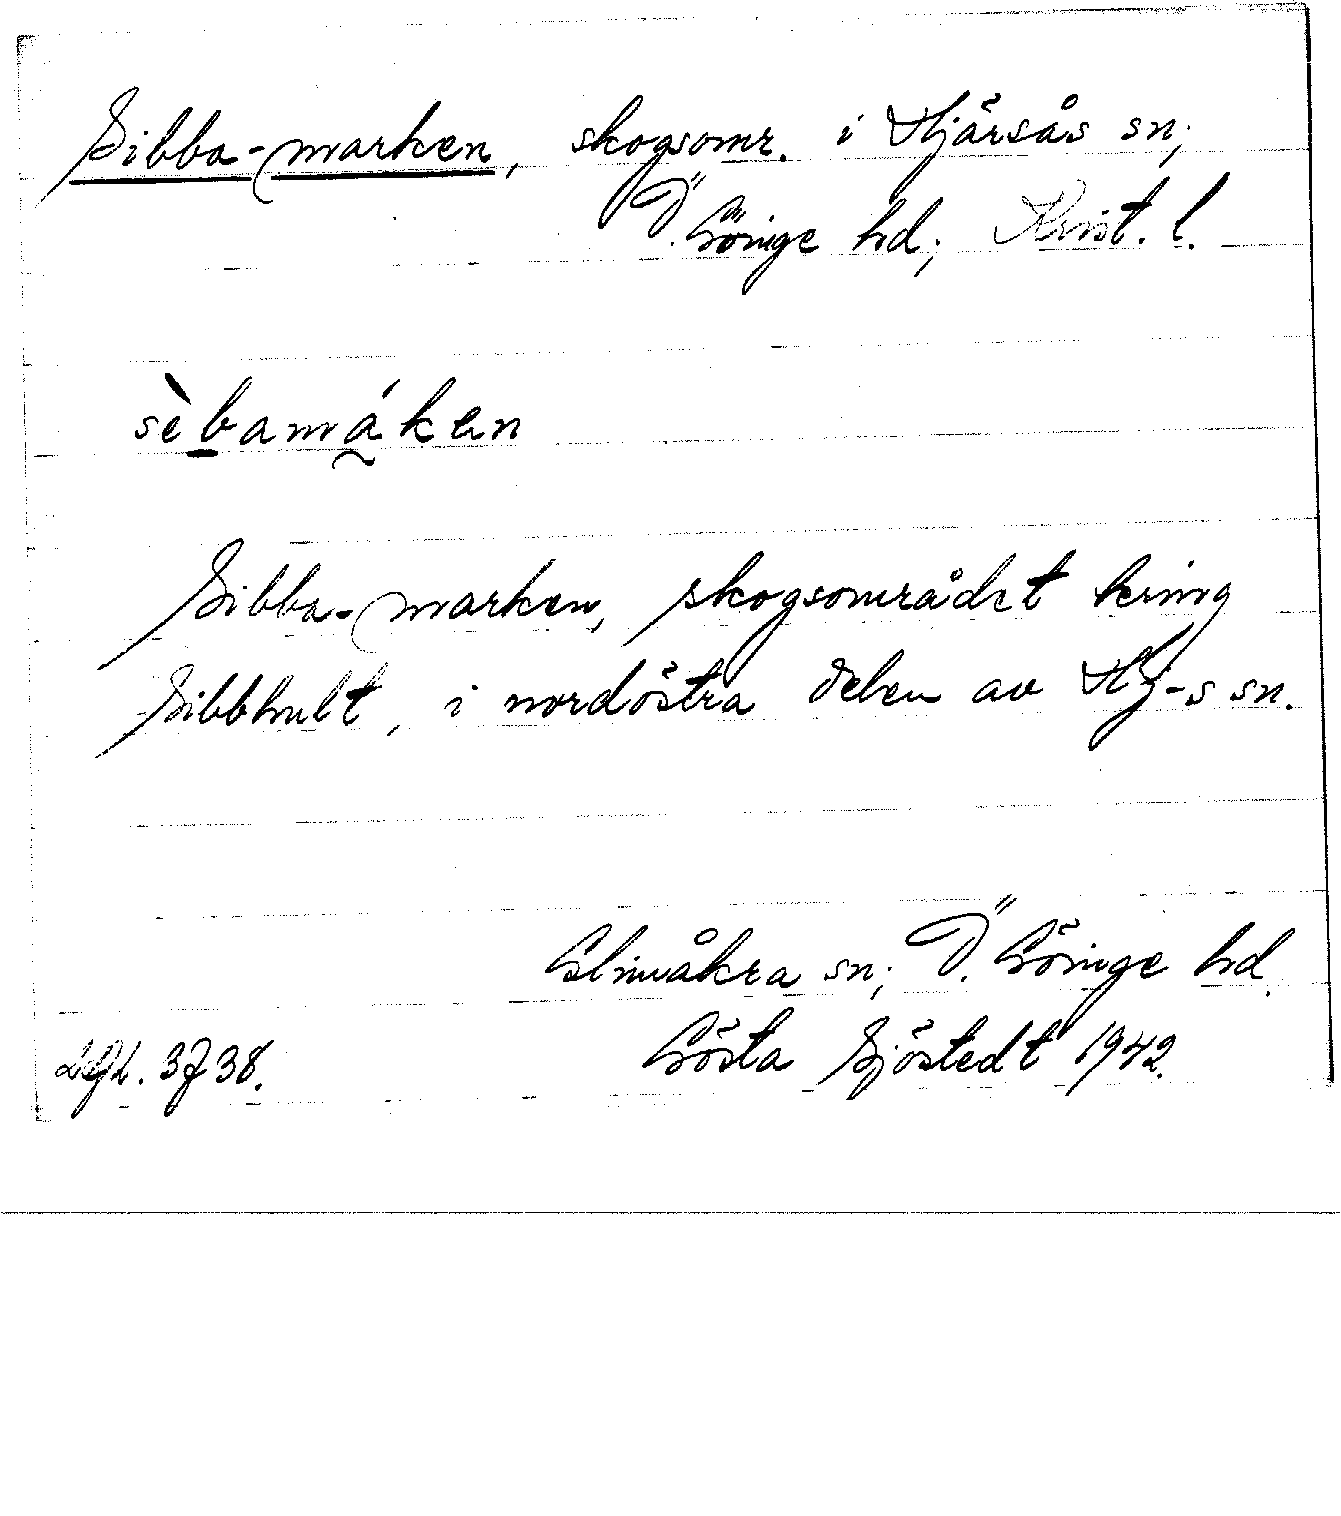 Sibba-marken, skogsomr. i Hjärsås sn;
Ö. Göinge hd; Krist. l.
sèbamáken
Sibba-marken, skogsområdet kring
Sibbhult, i nordöstra delen av Hj-s sn.
Glimåkra sn; Ö. Göinge hd.
Gösta Sjöstedt 1942.
3738.